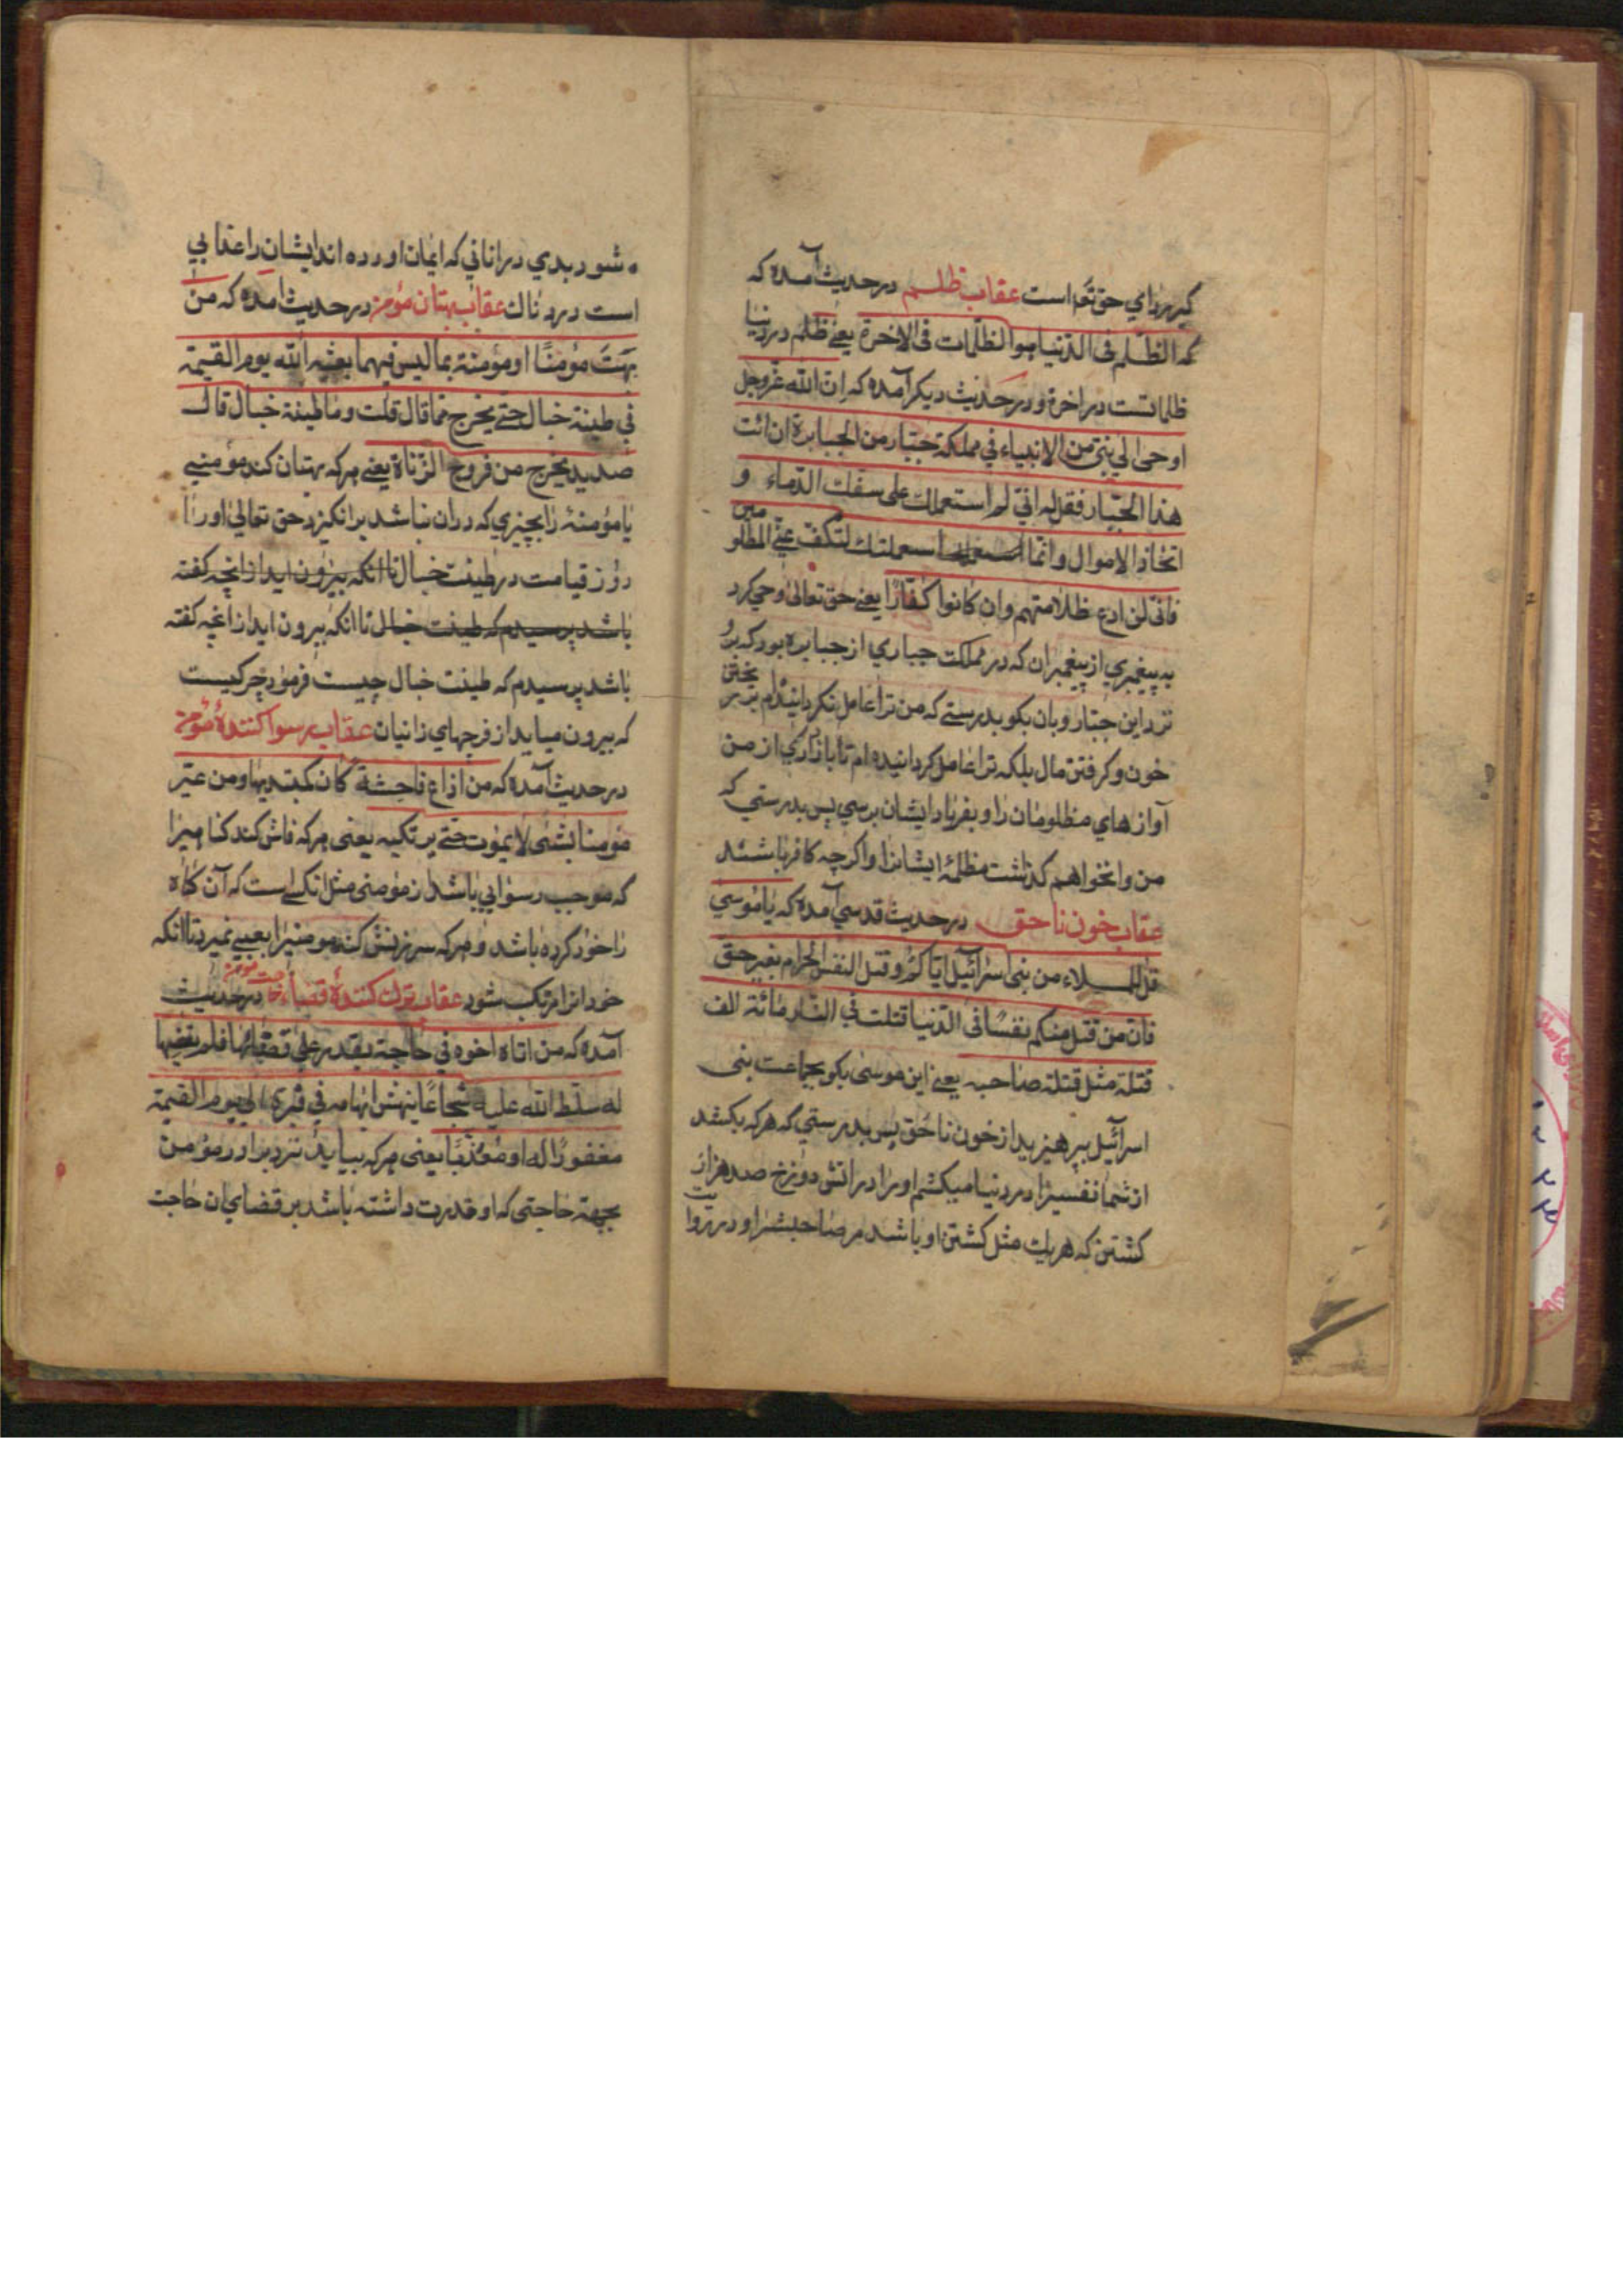 کبر ردای حق تعا است عقاب ظلم در حدیث آمده که
که الظلم فی الدنیا هو الظلمات فی الاخرة یعنی ظلم در دنیا
ظلماتست در اخرة و در حدیث دیکر آمده که ان الله عز وجل
اوحی الی نبی من الانبیاء فی مملکة جبار من الجبابرة ان ائت
هذا الجبار فقل له انی لم استعملک علی سفک الدماء و
اتخاذ الاموال وانما استعملتک لتکف عنی المظلومین
فانی لن ادع ظلامتهم وان کانوا کفارا یعنی حق تعالی وحی کرد
به پیغمبری از پیغمبران که در مملکت جباری از جبابره بود که برو
نزد این جبار و بان بکو بدرستی که من ترا عامل نکردانیدم بر ریختن
خون و کرفتن مال بلکه ترا عامل کردانیده ام تا بازداری از من
آوازهای مظلومان را و بفریاد ایشان برسی پس بدرستی که
من وانخواهم کذاشت مظلمهٔ ایشانرا و اکرچه کافر باشند
عقاب خون ناحق در حدیث قدسی آمده که یا موسی
قل للملاء من بنی اسرآئیل ایاکم و قتل النفس الحرام بغیر حق
فان من قتل منکم نفسا فی الدنیا قتلت فی النار مائة الف
قتلة مثل قتلة صاحبه یعنی این موسی بکو بجماعت بنی
اسرآئیل بپرهیزید از خون ناحق پس بدرستی که هرکه بکشد
از شما نفسیرا در دنیا میکشم او را در اتش دوزخ صد هزار
کشتن که هریک مثل کشتن او باشد مر صاحبشرا و در روایت
شود بدی در انانی که ایمان اورده اند ایشان را عذابی
است دردناک عقاب بهتان مؤمن در حدیث امده که من
بهت مؤمنا او مؤمنة بما لیس فیهما بعثه الله یوم القیمة
فی طینة خبال حتی یخرج مما قال قلت وما طینة خبال قال
صدید یخرج من فروج الزناة یعنی هرکه بهتان کند مؤمنی
یا مؤمنهٔ را بچیزی که دران نباشد برانکیزد حق تعالی او را
روز قیامت در طینت خبال تا انکه بیرون اید از انچه کفته
باشد پرسیدم که طینت خبال تا انکه بیرون اید از انچه کفته
باشد پرسیدم که طینت خبال چیست فرمود چرکیست
که بیرون میاید از فرجهای زانیان عقاب رسوا کنندهٔ مؤمن
در حدیث آمده که من اذاع فاحشة کان کمبتدیها ومن عیر
مؤمنا بشی لا یموت حتی یرتکبه یعنی هرکه فاش کند کناهیرا
که موجب رسوایی باشد از مؤمنی مثل انکسی است که آن کناه
را خود کرده باشد و هرکه سرزنش کند مومنیرا بعیبی نمیرد تا انکه
خود انرا مرتکب شود عقاب ترک کنندهٔ قضاء حاجت مومن در حدیث
آمده که من اتاه اخوه فی حاجة یقدر علی قضائها فلم یقضها
له سلط الله علیه شجاعا ینهش ابهامه فی قبره الی یوم القیمة
مغفورا له او معذبا یعنی هرکه بیاید نزد برادر مؤمن
بجهة حاجتی که او قدرت داشته باشد بر قضای ان حاجت